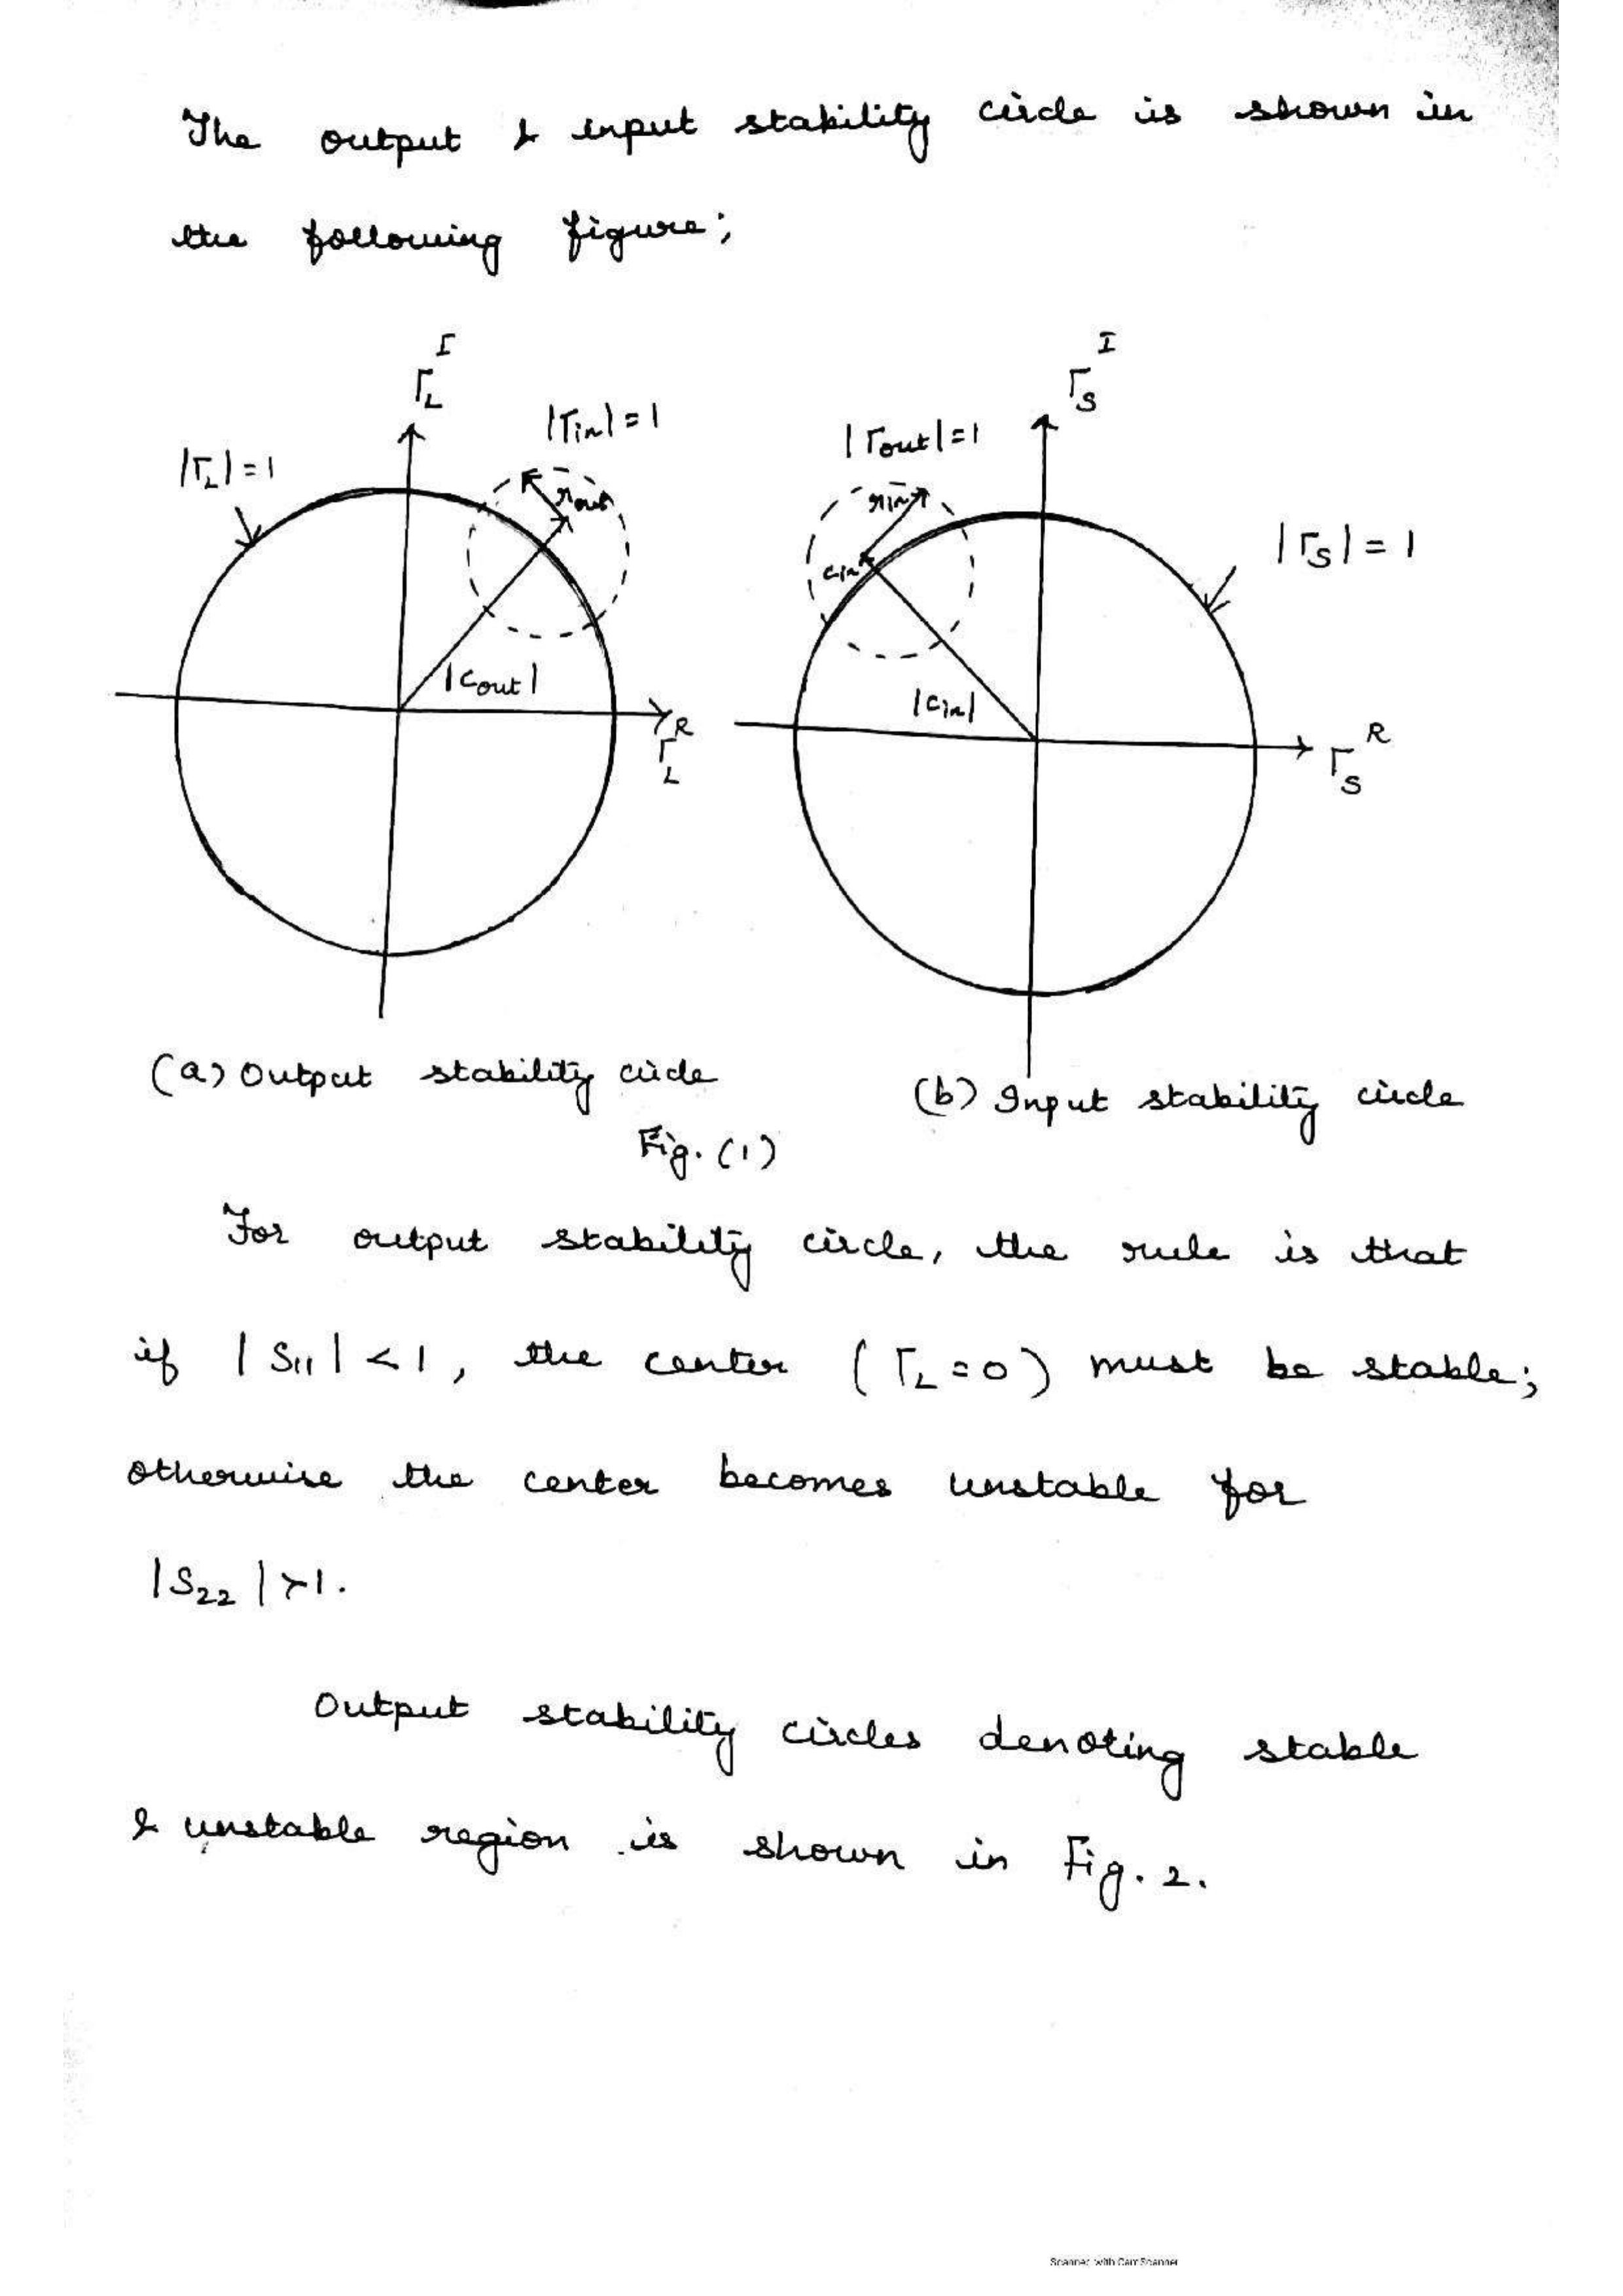 The output & input stability circle is shown in
the following figure;
Γ_L^I
|Γin| = 1
|Γ_L| = 1
rout
|Cout|
Γ_L^R
Γ_S^I
|Γout| = 1
rin
Cin
|Γ_S| = 1
|Cin|
Γ_S^R
(a) Output stability circle
(b) Input stability circle
Fig. (1)
For output stability circle, the rule is that
if |S₁₁| < 1, the center (Γ_L = 0) must be stable;
otherwise the center becomes unstable for
|S₂₂| > 1.
Output stability circles denoting stable
& unstable region is shown in Fig. 2.
Scanned with CamScanner